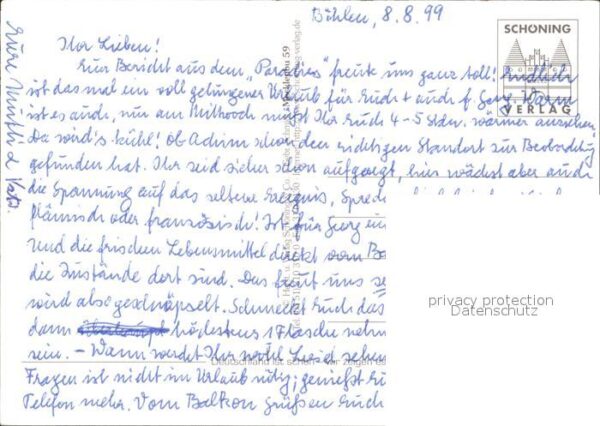 Bühlen, 8.8.99
SCHÖNING
VERLAG
Ihr Lieben!
Euer Bericht aus dem "Paradies" freute uns ganz toll! Endlich
ist das mal ein voll gelungener Urlaub für Euch + auch f. Georg. Warm
ist es auch, nur am Mittwoch müßt Ihr Euch 4-5 Stdn. wärmer anziehen.
Da wird's kühl! Ob Achim schon den richtigen Standort zur Beobachtung
gefunden hat. Ihr seid sicher schon aufgeregt, hier wächst aber auch
die Spannung auf das seltene Ereignis,
flämisch oder französisch! Ist für Georg ein
und die frischen Lebensmittel direkt vom
die Zustände dort sind. Das freut uns
wird also geschnäpselt. Schmeckt Euch das
dann höchstens 1 Flasche
sein. - Wann werdet Ihr wohl
Fragen ist nicht im Urlaub nötig; genießt
Telefon mehr. Vom Balkon grüßen Euch
Eure Mutti + Vati.
privacy protection
Datenschutz